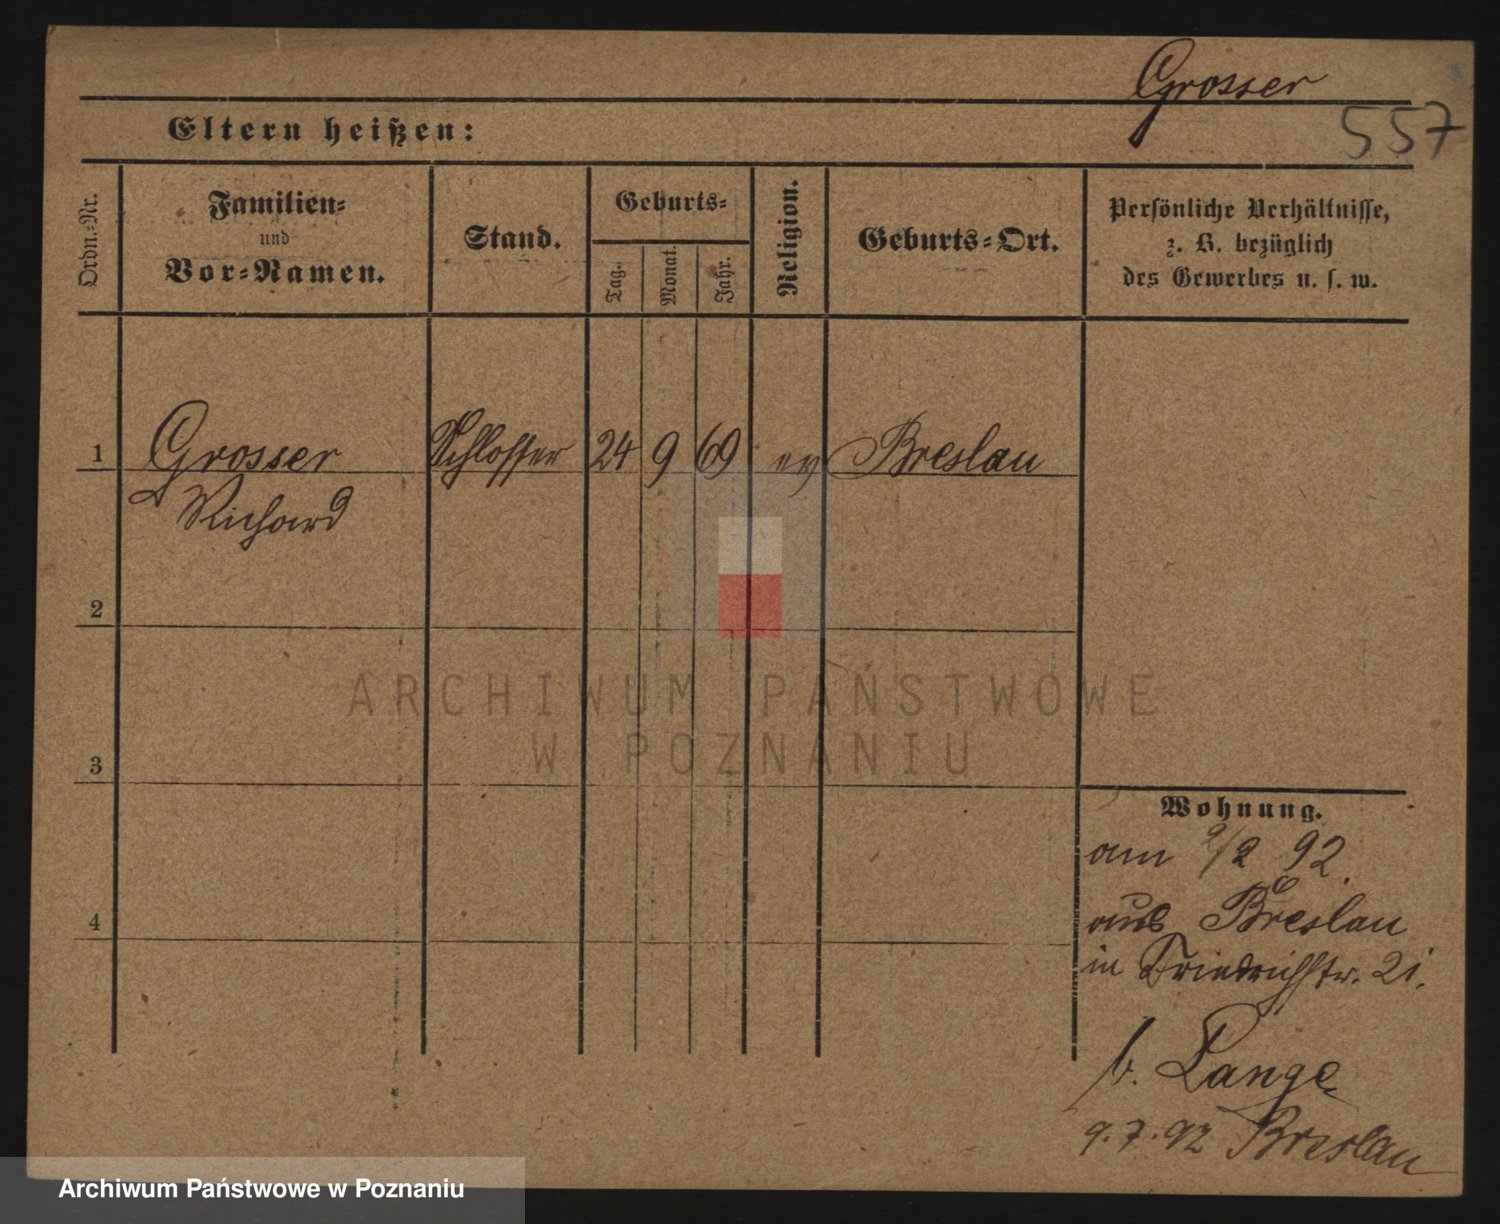 Grosser
557
Eltern heißen:
Ordn.-Nr.
Familien-
und
Vor-Namen.
Stand.
Geburts-
Tag.
Monat.
Jahr.
Religion.
Geburts-Ort.
Persönliche Verhältnisse,
z. B. bezüglich
des Gewerbes u. s. w.
1 Grosser Schlosser 24 9 69 ev Breslau
Richard
2
3
4
Wohnung.
am 2/2 92.
aus Breslau
in Friedrichstr. 21.
b. Lange
9.7.92 Breslau
ARCHIWUM PAŃSTWOWE
W POZNANIU
Archiwum Państwowe w Poznaniu